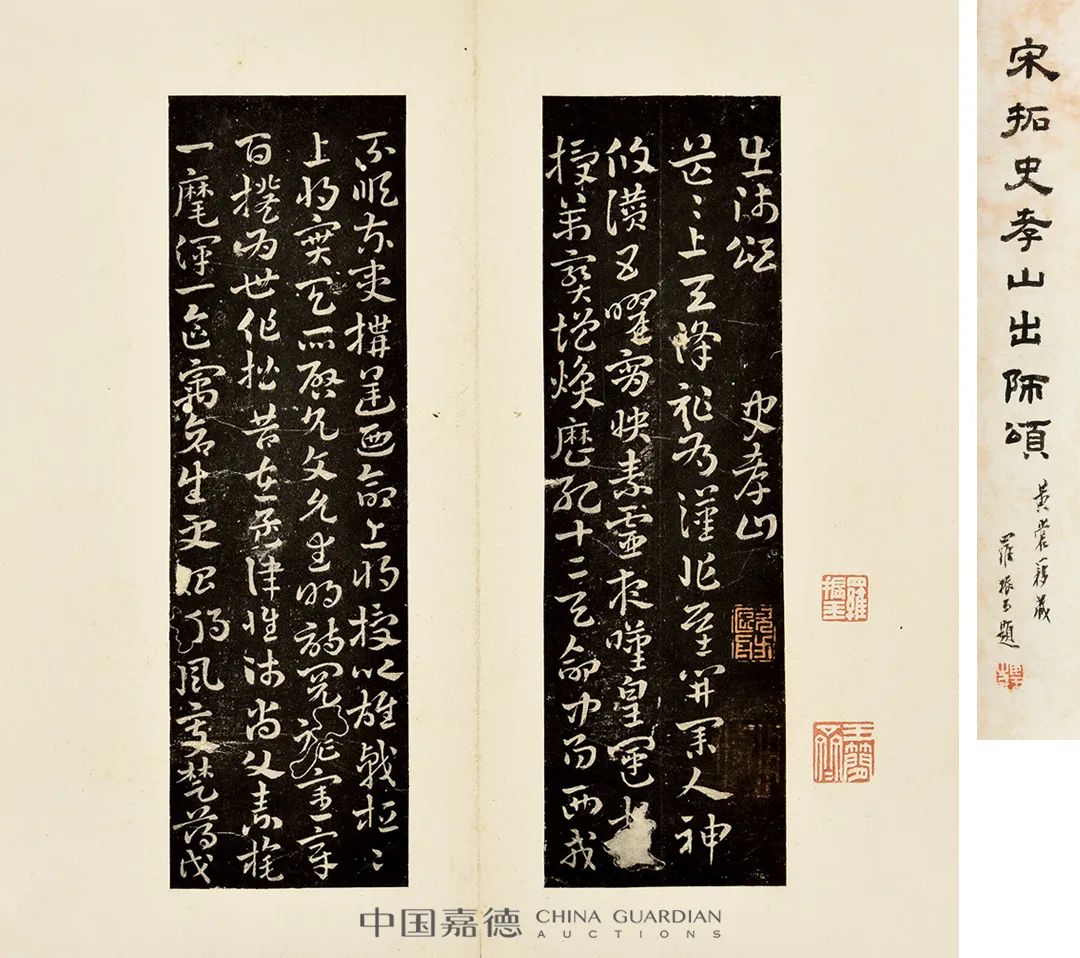 宋拓史孝山出師頌
舊藏
羅振玉題
出師頌 史孝山
茫〻上天降祚為漢作基開業人神
攸讚五曜霄映素靈夜歎皇運
授萬寶增煥歷紀十二天命中易西戎
不順東夷構逆乃命上將授以雄戟桓〻
上將實天所啟允文允武明詩閱禮憲章
百揆為世作楷昔在孟津惟師尚父素旄
一麾渾一區宇蒼生更始朔風變楚薄伐
羅振玉
中国嘉德 CHINA GUARDIAN
AUCTIONS